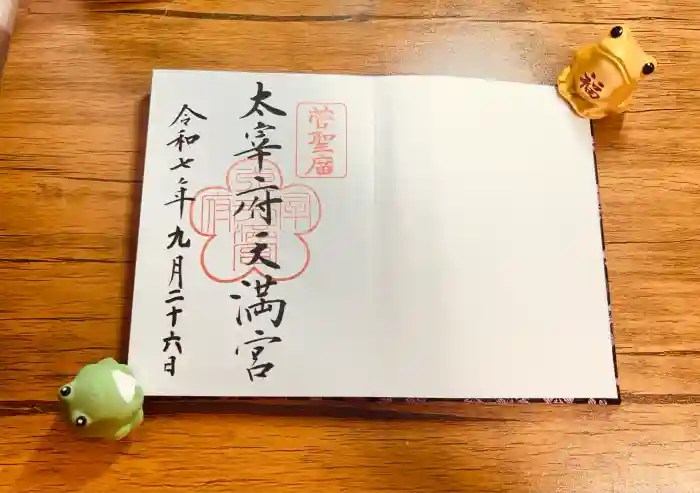 菅聖廟
太宰府天満宮
令和七年九月二十六日
福